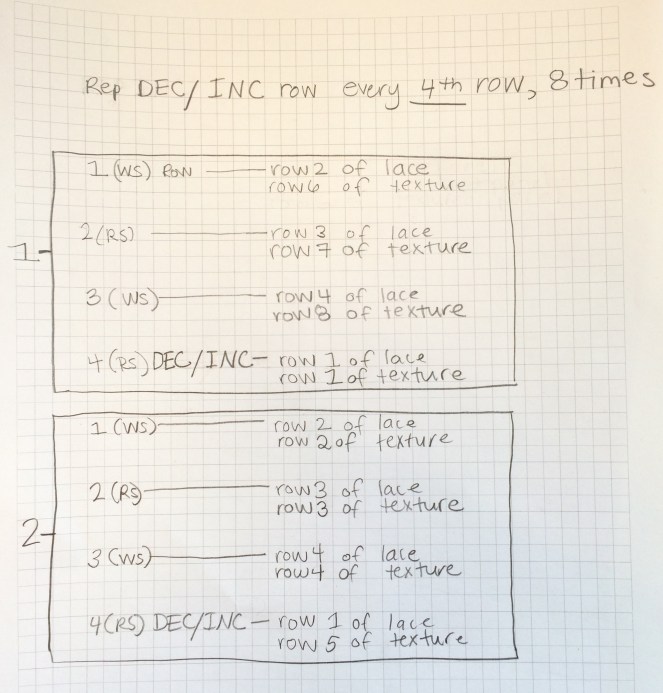 Rep DEC/INC row every 4th row, 8 times
1
1 (WS) ROW — row 2 of lace
row 6 of texture
2 (RS) — row 3 of lace
row 7 of texture
3 (WS) — row 4 of lace
row 8 of texture
4 (RS) DEC/INC — row 1 of lace
row 1 of texture
2
1 (WS) — row 2 of lace
row 2 of texture
2 (RS) — row 3 of lace
row 3 of texture
3 (WS) — row 4 of lace
row 4 of texture
4 (RS) DEC/INC — row 1 of lace
row 5 of texture